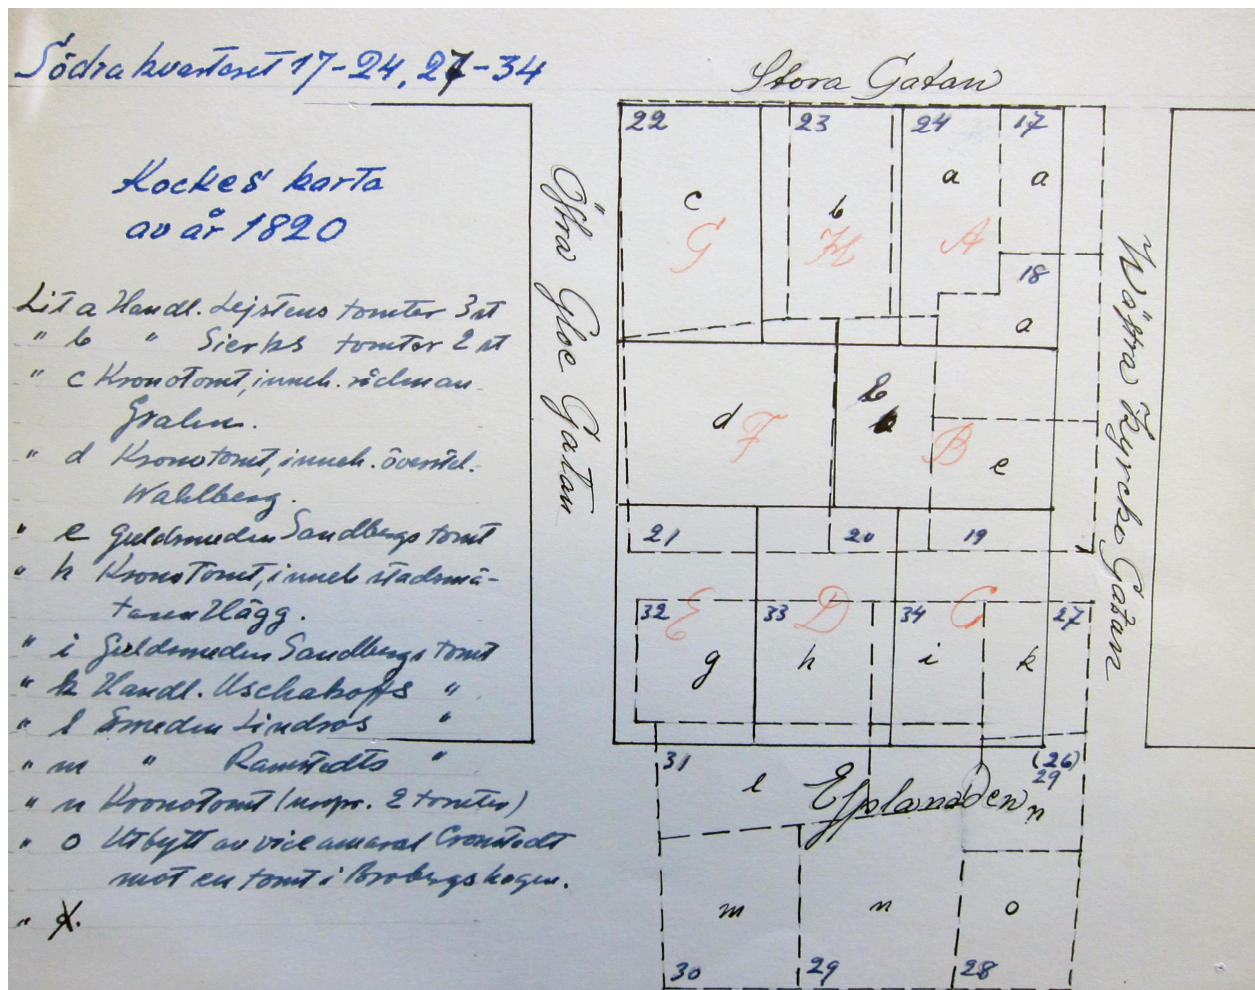 Södra kvarteret 17-24, 27-34
Kockes karta
av år 1820
Lit a Handl. Lejstens tomter 3 st
" b " Sierks tomter 2 st
" c Kronotomt, inneh. rådman
Gralin.
" d Kronotomt, inneh. överstel.
Wahlberg.
" e Guldsmeden Sandbergs tomt
" h Kronotomt, inneh stadsmä-
taren Hägg.
" i Guldsmeden Sandbergs tomt
" k Handl. Uschakoffs "
" l Smeden Lindros "
" m " Ramstedts "
" n Kronotomt (urspr. 2 tomter)
" o Utbytt av viceamiral Cronstedt
mot en tomt i Brobergskogen.
"
Stora Gatan
Östra Gloe Gatan
Wästra Kyrcko Gatan
22 23 24 17
c b a a
G H A
18
a
d b
F B e
21 20 19
E D C
32 33 34 27
g h i k
31 (26)
29
l Esplanaden n
m n o
30 29 28